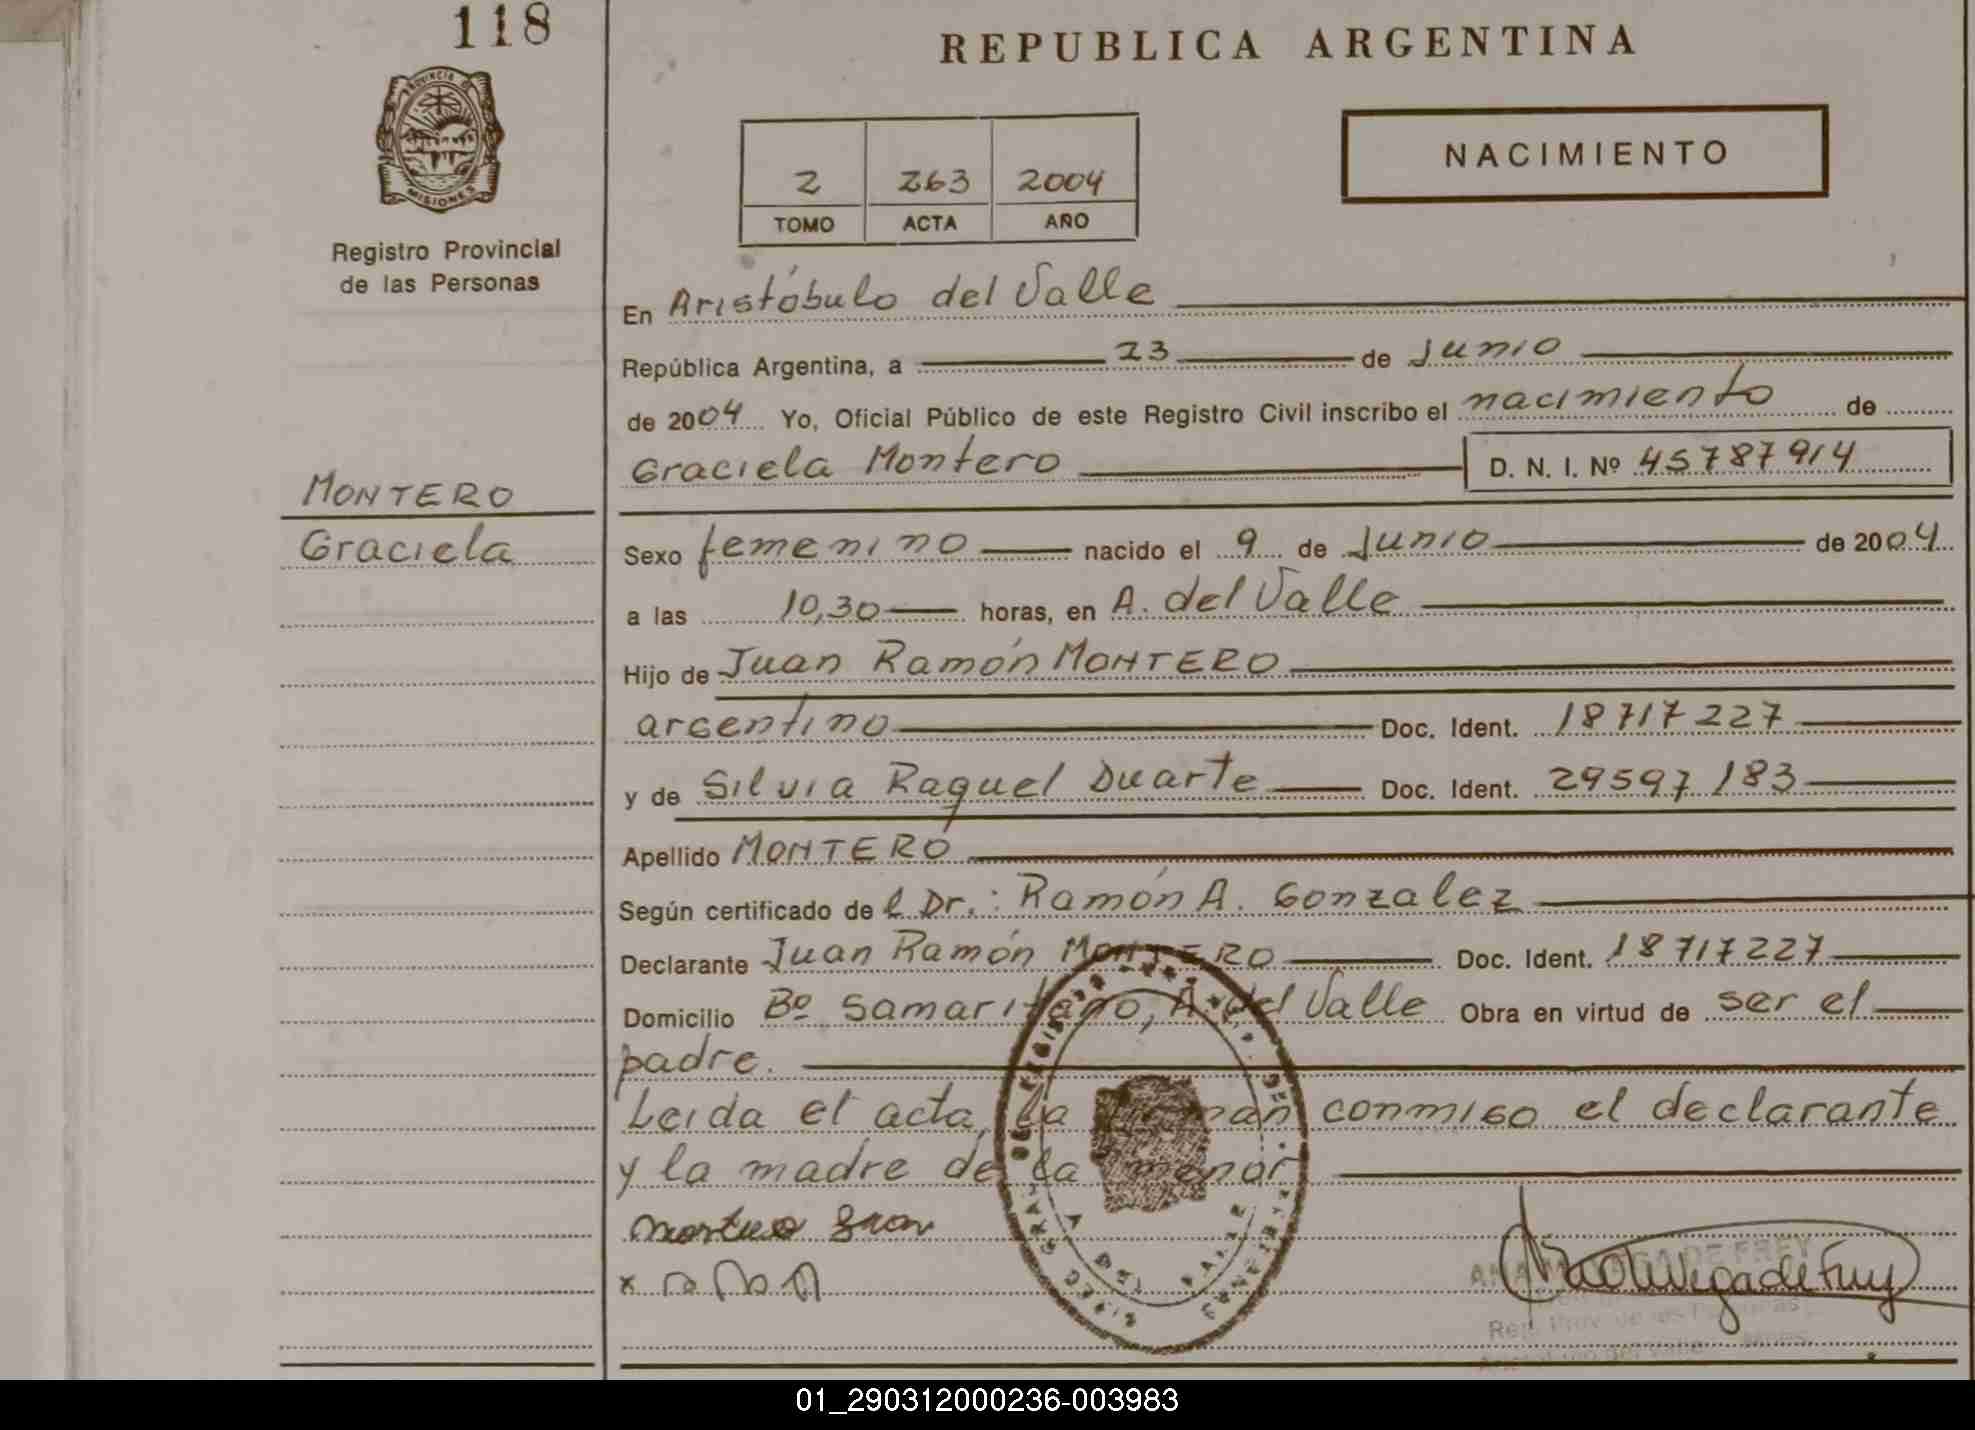 118
PROVINCIA D
MISIONES
Registro Provincial
de las Personas
MONTERO
Graciela
REPUBLICA ARGENTINA
NACIMIENTO
2 263 2004
TOMO ACTA AÑO
En Aristóbulo del Valle
República Argentina, a 23 de Junio
de 2004 Yo, Oficial Público de este Registro Civil inscribo el nacimiento de
Graciela Montero D. N. I. Nº 45787914
Sexo femenino nacido el 9 de Junio de 2004
a las 10,30 horas, en A. del Valle
Hijo de Juan Ramón MONTERO
argentino Doc. Ident. 18717227
y de Silvia Raquel Duarte Doc. Ident. 29597183
Apellido MONTERO
Según certificado del Dr.: Ramón A. Gonzalez
Declarante Juan Ramón MONTERO Doc. Ident. 18717227
Domicilio Bº Samaritano, A. del Valle Obra en virtud de ser el
padre.
Leida el acta, la firman conmigo el declarante
y la madre de la menor
DE FREY
01_290312000236-003983